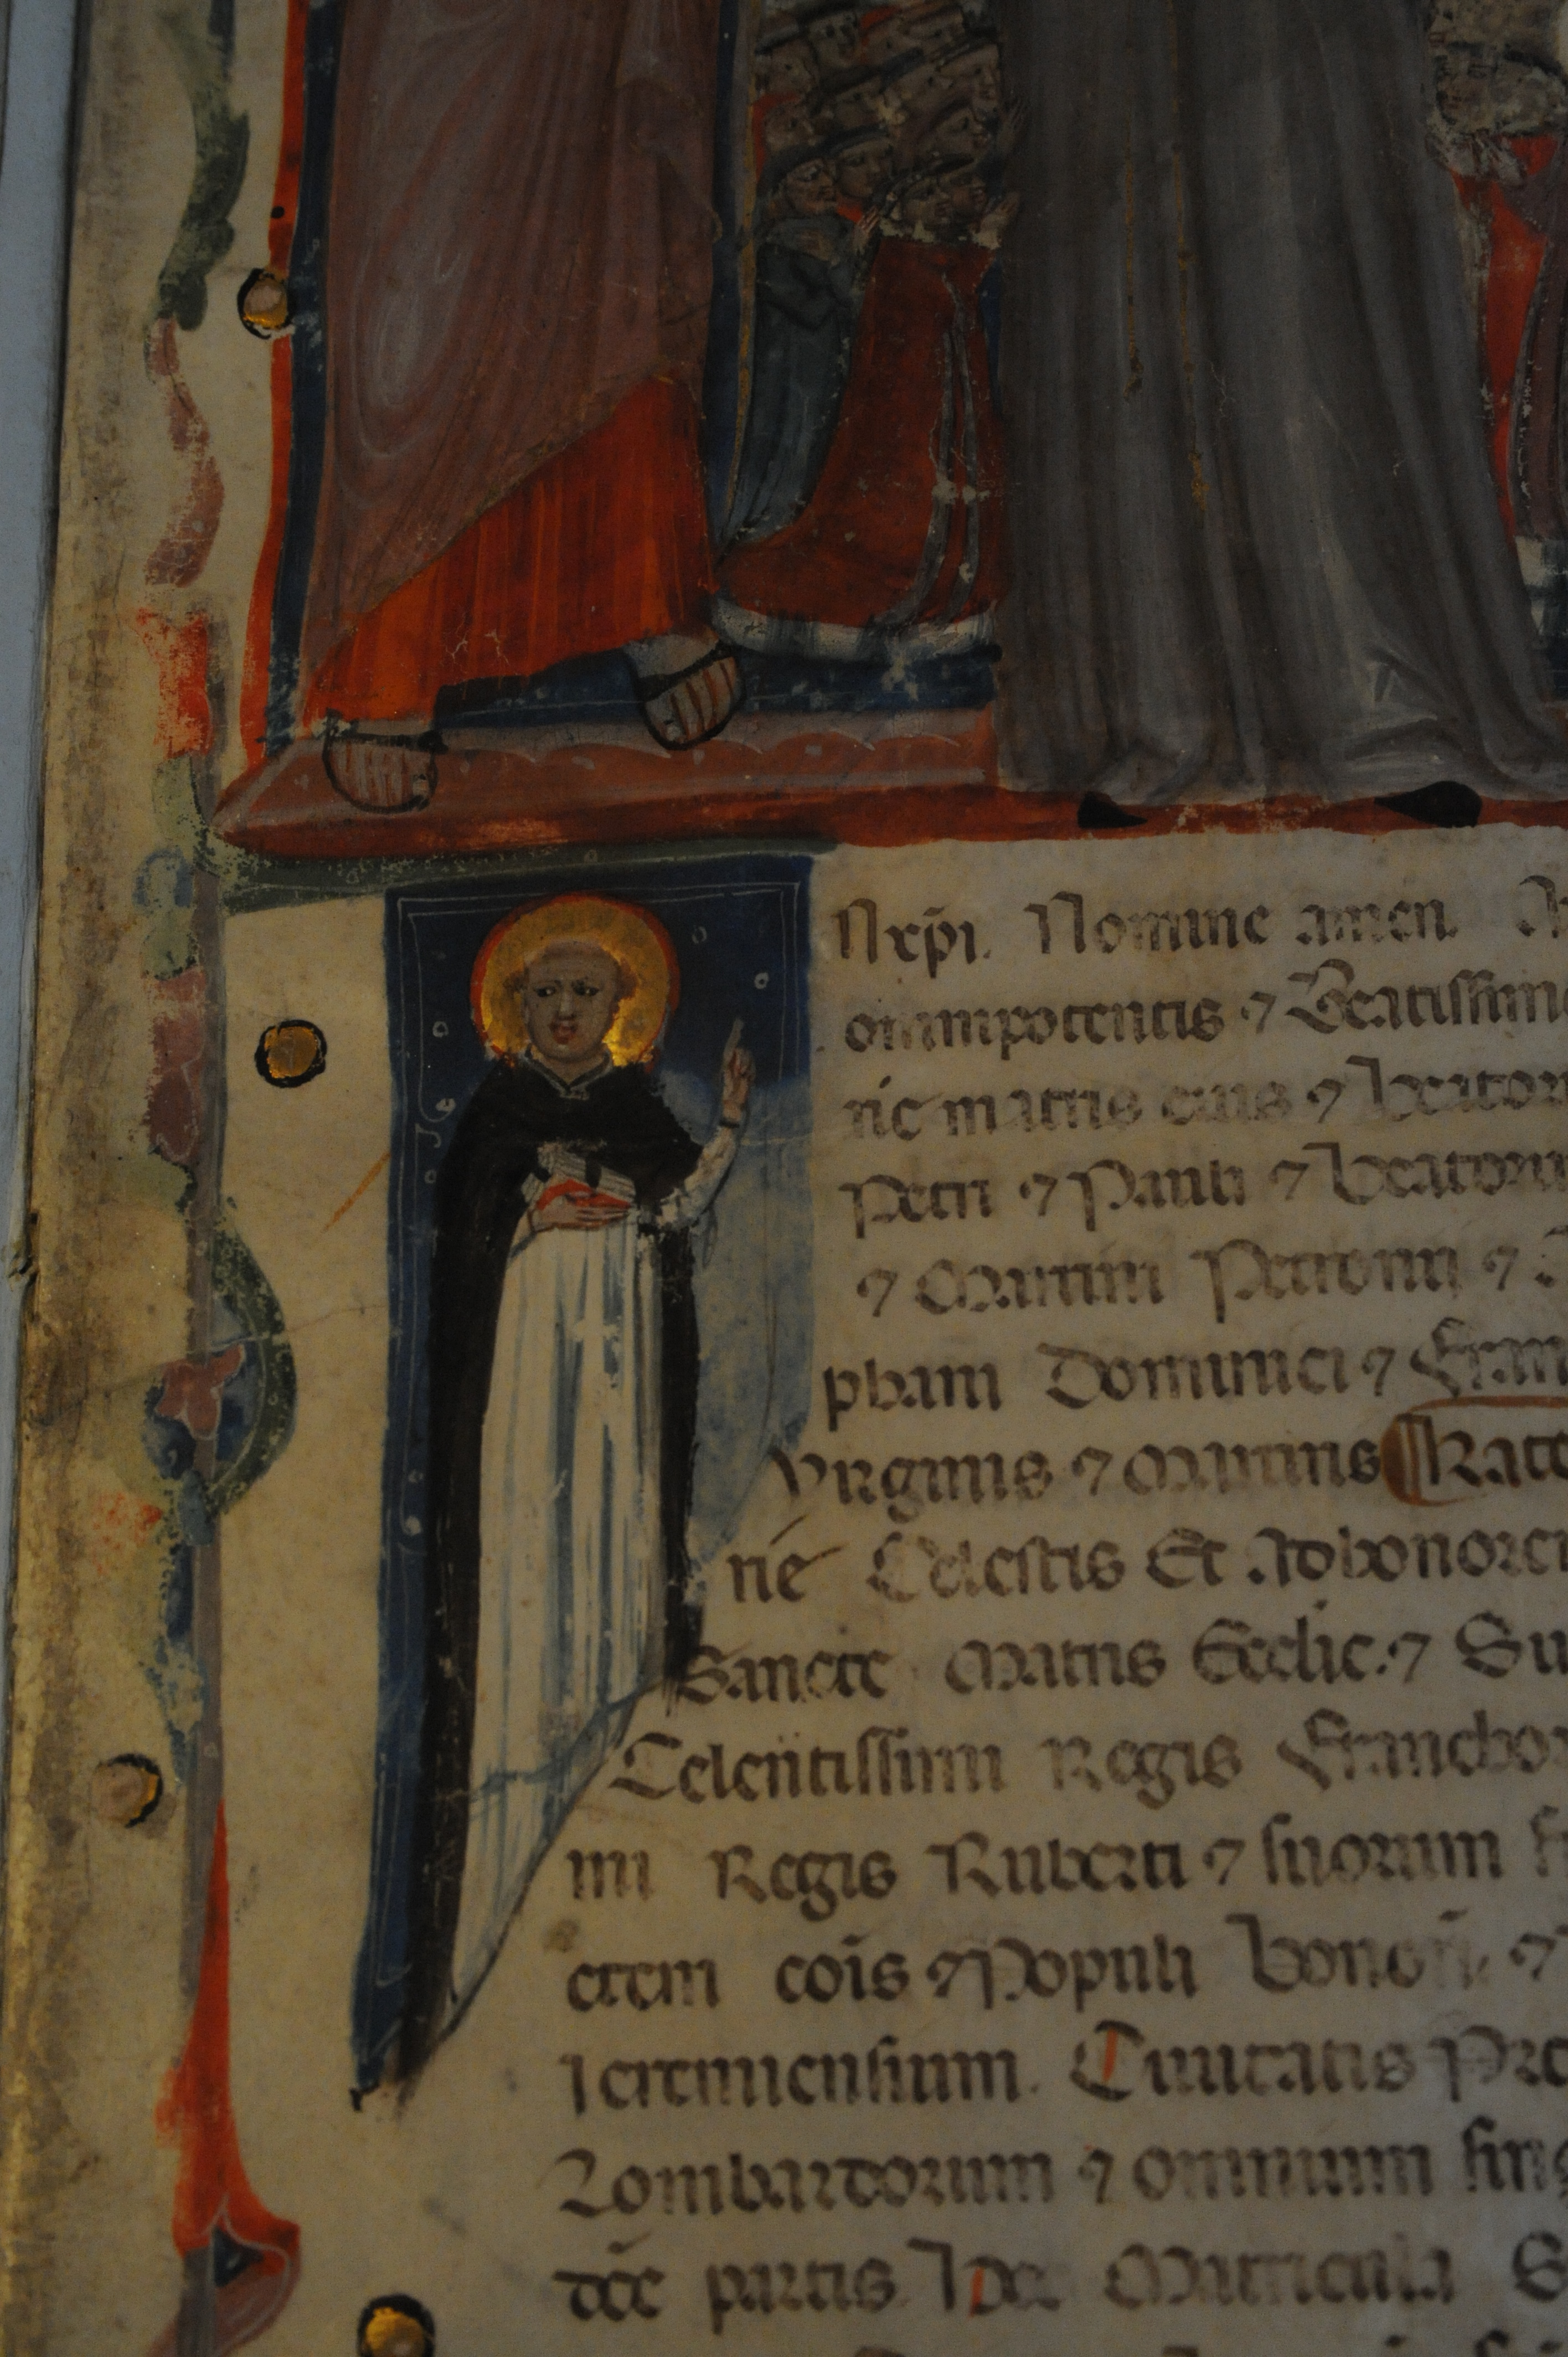 N xp̄i. Nomine amen.
omnipotentis ⁊ Beatissime
rie matris eius ⁊ beator
Petri ⁊ Pauli ⁊ beatorum
⁊ Martiri Petronii ⁊
pham Dominici ⁊ Fran
Virginis ⁊ Martiris Kate
rie Celestis Et Ad honorem
Sancte Matris Ecclie. ⁊ Su
Celentissimi Regis Francho
mi Regis Ruberti ⁊ suorum
etem cōis ⁊ Populi bonoñ ⁊
Ieremiensium. Civitatis Pre
Lombardorum ⁊ omnium sing
dc̄e partis. Hec Matricula S